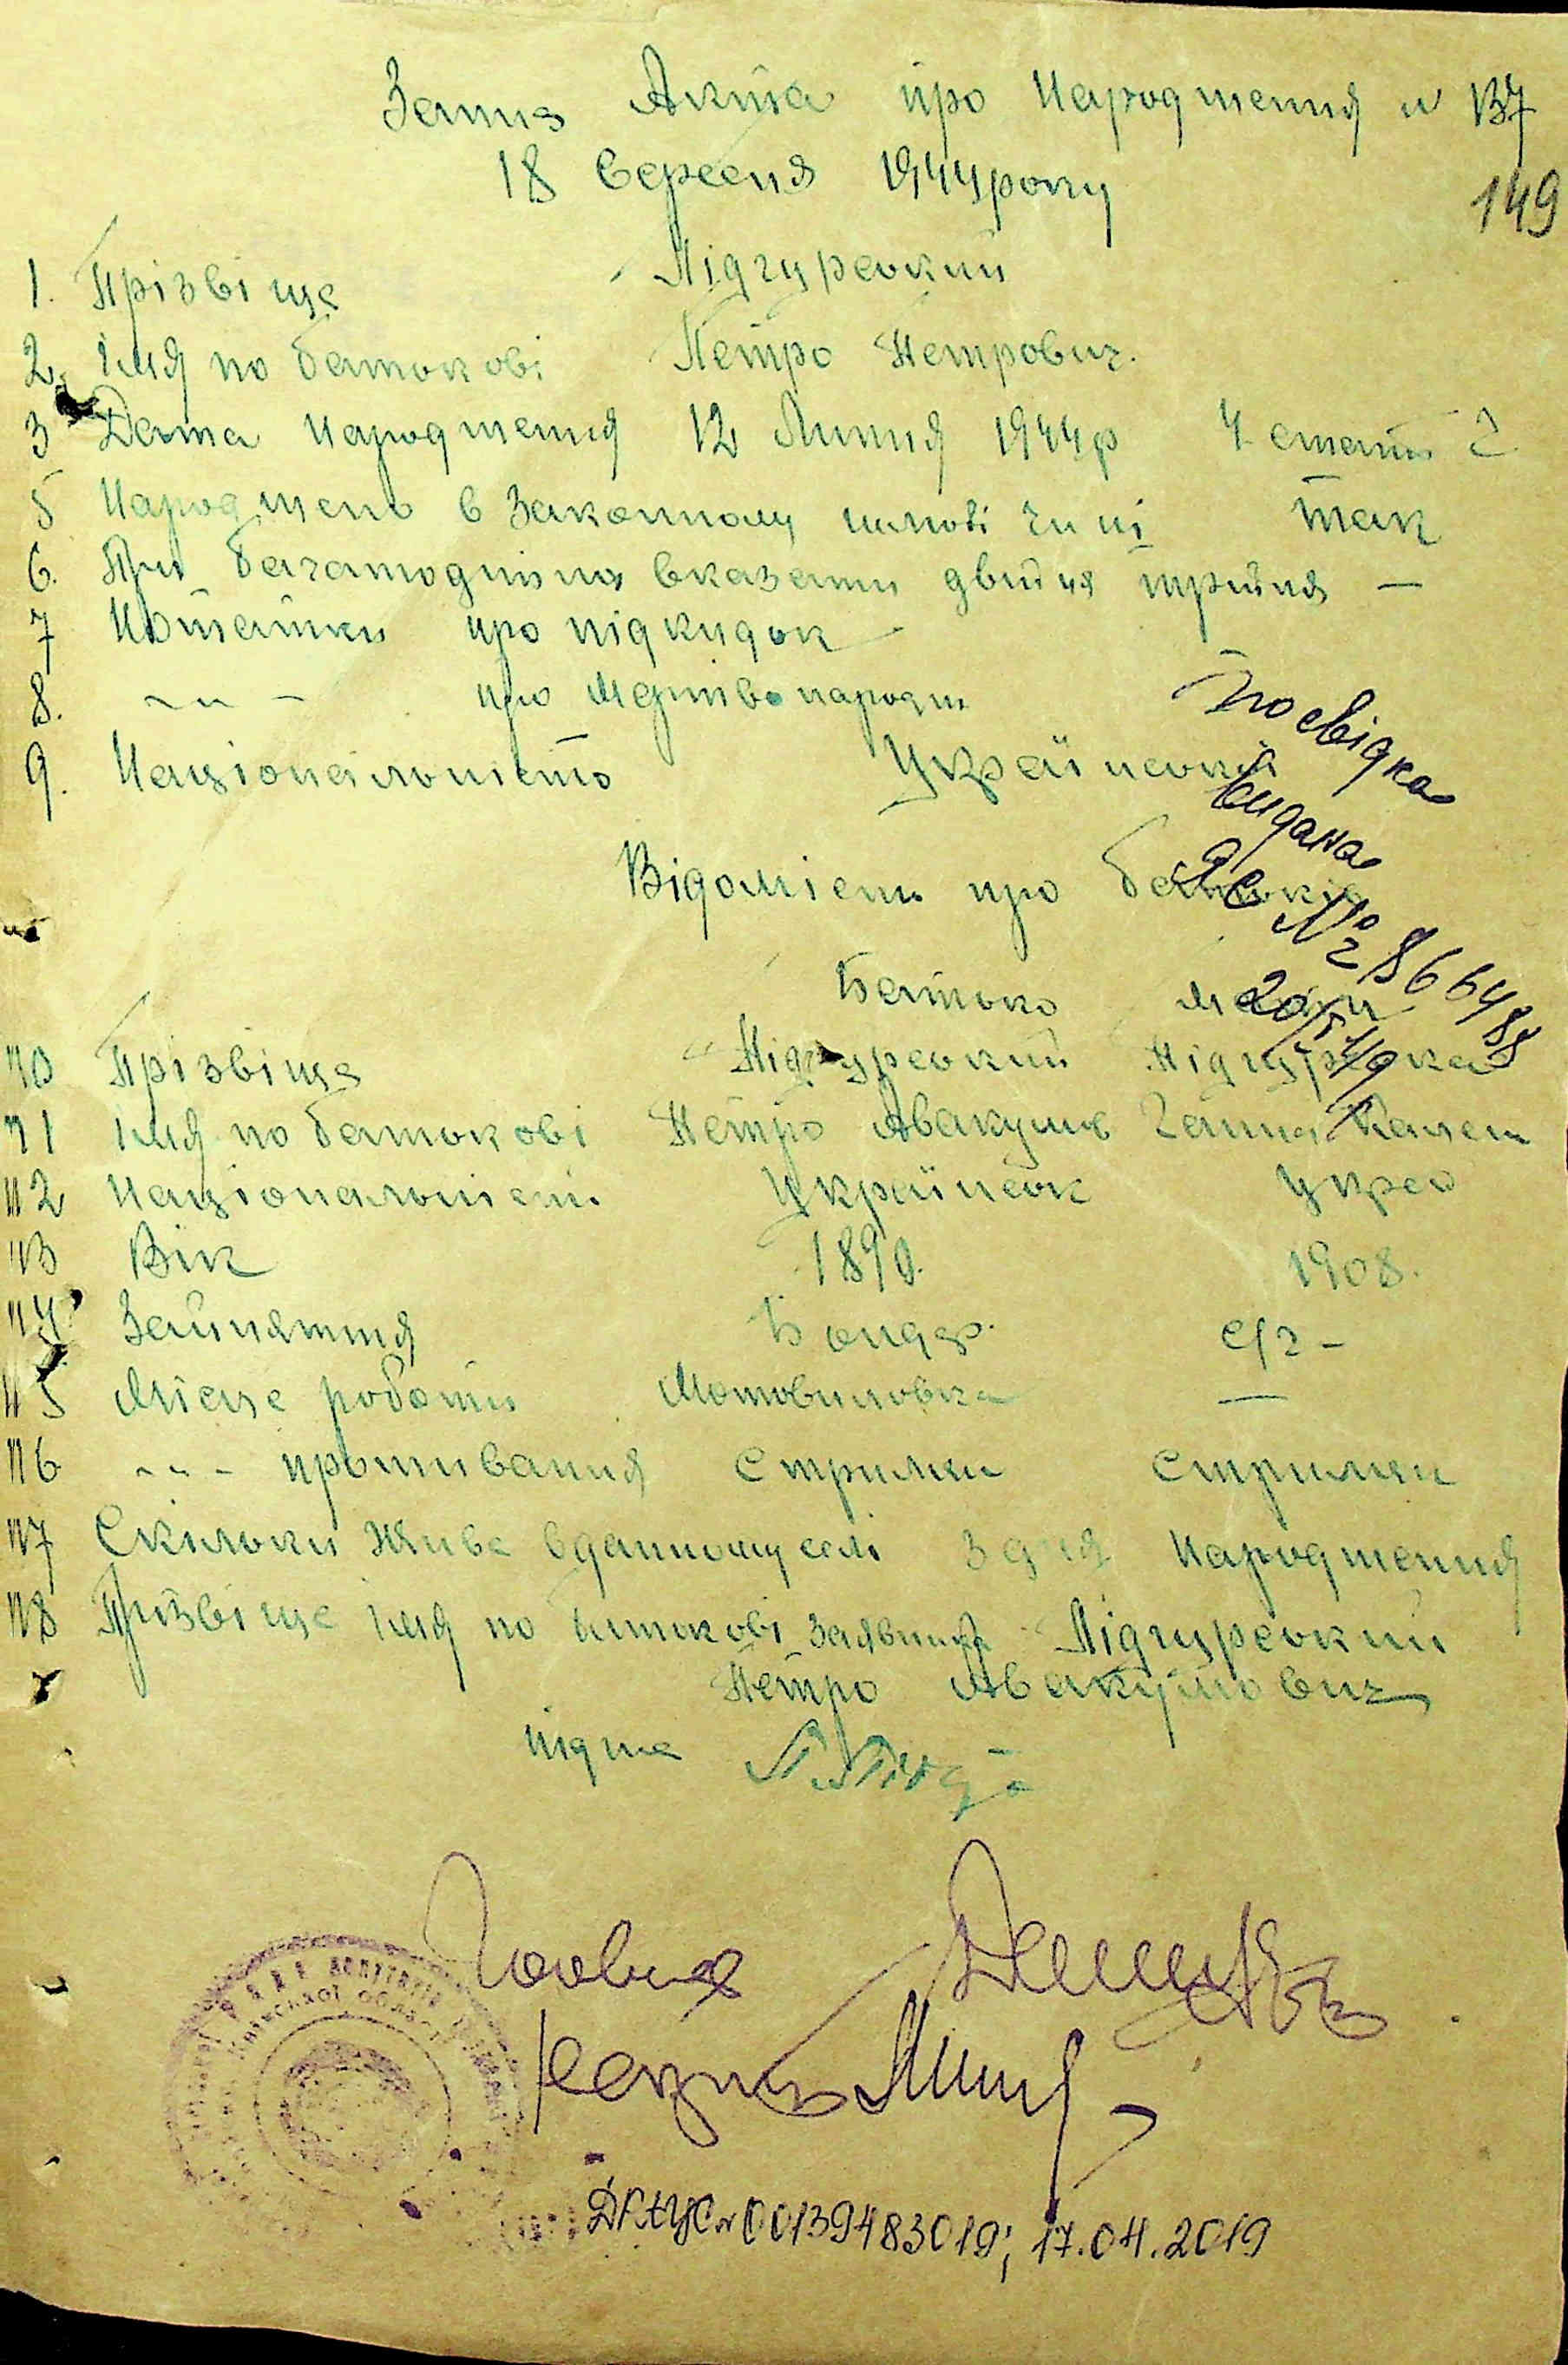 Запис Акта про Народження N 137
18 Серсеня 1944 року
149
1. Прізвіще Підгурський
2. імя по батькові Петро Петрович.
3 Дата Народження 12 Липня 1944 р 4 стать Ч
5 Народжень в Законному шлюбі чи ні так
6. При багатоднина вказати двійня трійня —
7 Нотатки про підкидок —
8. ~ " – про мертвонародж
9. Національність Український
Посвідка
видана
ЯС № 2866488
20/V 49
Відомість про батьків
Батько мати
10 Прізвіще Підгурський Підгурська
11 імя по батькові Петро Авакумов Ганна
12 Національність Українськ Укра
13 Вік 1890. 1908.
14 Зайняття Бондар. с/г –
15 Місце роботи Мотовиловка —
16 ~ " – проживання Стримки Стримки
17 Скільки Живе в данному селі з дня Народження
18 Прізвіще імя по батькові заявника Підгурський
Петро Авакумович
підпис
Голова
Секретар
ДРАЦС N 00139483019; 17.04.2019